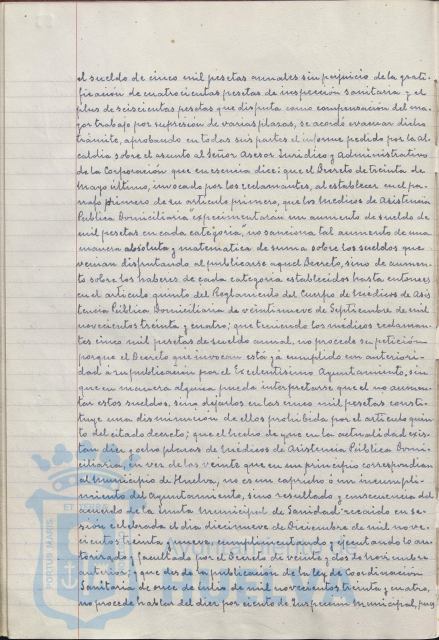 el sueldo de cinco mil pesetas anuales sin perjuicio de la grati-
ficación de cuatrocientas pesetas de inspección sanitaria y el
plus de seiscientas pesetas que disfruta como compensación del ma-
yor trabajo por supresión de varias plazas, se acordó evacuar dicho
trámite, aprobando en todas sus partes el informe pedido por la al-
caldía sobre el asunto al Señor Asesor Jurídico y Administrativo
de la Corporación que en esencia dice: que el Decreto de treinta de
mayo último, invocado por los reclamantes, al establecer en el pá-
rrafo primero de su artículo primero, que los Médicos de Asistencia
Pública Domiciliaria "experimentarán un aumento de sueldo de
mil pesetas en cada categoría", no sanciona tal aumento de una
manera absoluta y matemática de suma sobre los sueldos que
venían disfrutando al publicarse aquel Decreto, sino de aumen-
to sobre los haberes de cada categoría establecidos hasta entonces
en el artículo quinto del Reglamento del Cuerpo de Médicos de Asis-
tencia Pública Domiciliaria de veintinueve de Septiembre de mil
novecientos treinta y cuatro; que teniendo los médicos reclaman-
tes cinco mil pesetas de sueldo anual, no procede su petición
porque el Decreto que invocan está ya cumplido con anteriori-
dad a su publicación por el Excelentísimo Ayuntamiento, sin
que en manera alguna pueda interpretarse que el no aumen-
tar estos sueldos, sino dejarlos en las cinco mil pesetas consti-
tuye una disminución de ellos prohibida por el artículo quin-
to del citado decreto; que el hecho de que en la actualidad exis-
tan diez y ocho plazas de Médicos de Asistencia Pública Domi-
ciliaria, en vez de las veinte que en un principio correspondían
al Municipio de Huelva, no es un capricho ó un incumpli-
miento del Ayuntamiento, sino resultado y consecuencia del
acuerdo de la Junta Municipal de Sanidad recaído en se-
sión celebrada el día diecinueve de Diciembre de mil nove-
cientos treinta y nueve, cumplimentando y ejecutando lo au-
torizado y facultado por el Decreto de veinte y dos de noviembre
anterior; que desde la publicación de la ley de Coordinación
Sanitaria de once de Julio de mil novecientos treinta y cuatro,
no procede hablar del diez por ciento de Inspección Municipal, pues
PORTUS MARIS
ET